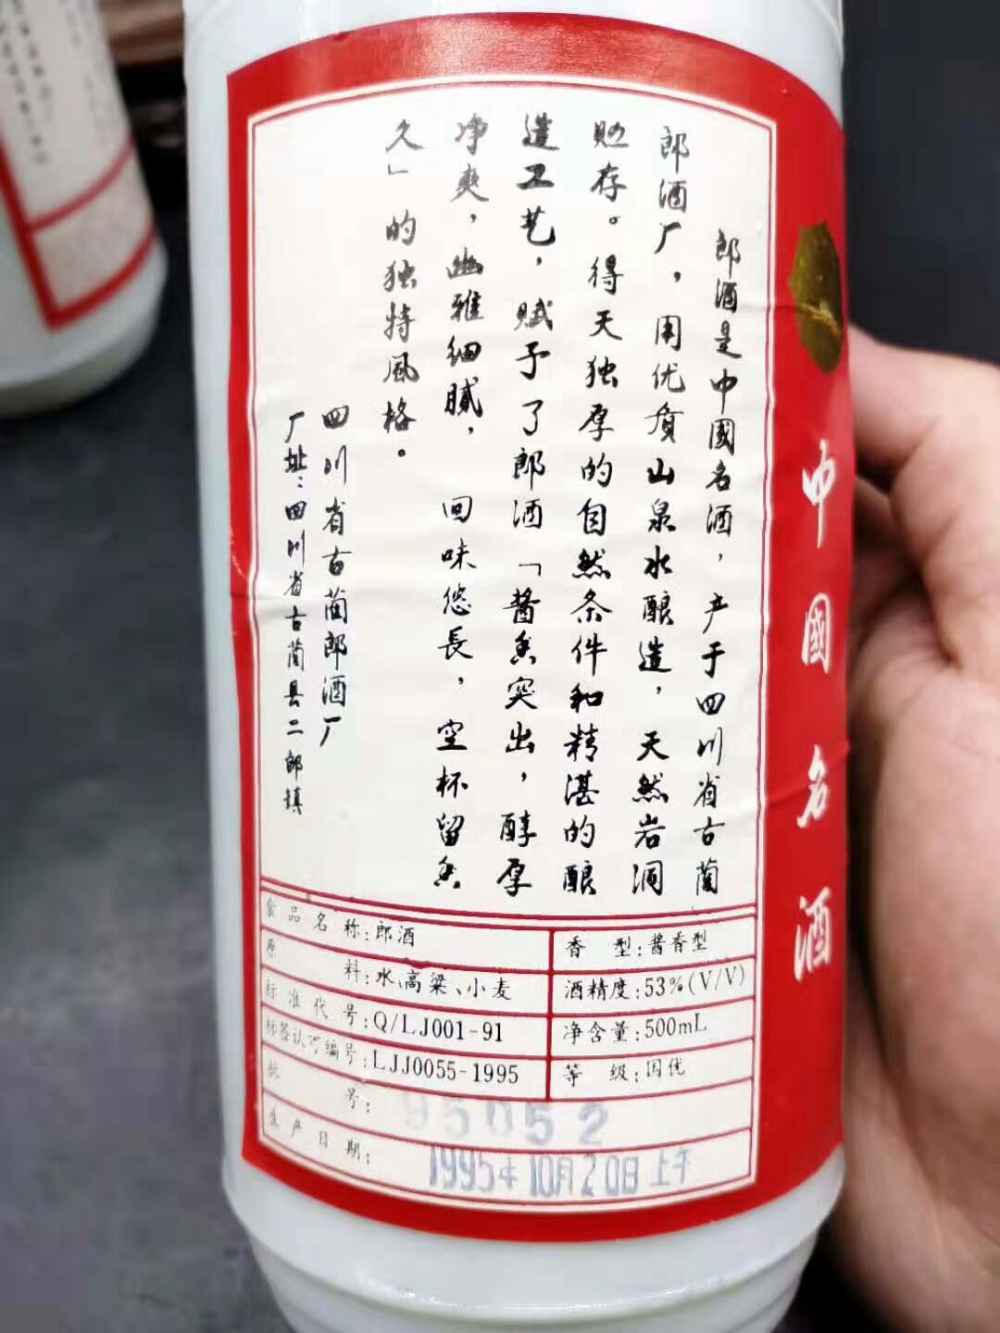 郎酒是中國名酒，产于四川省古蔺
郎酒厂，用优质山泉水酿造，天然岩洞
贮存。得天独厚的自然条件和精湛的酿
造工艺，赋予了郎酒「酱香突出，醇厚
净爽，幽雅细腻，回味悠長，空杯留香
久」的独特风格。
四川省古蔺郎酒厂
厂址：四川省古蔺县二郎镇
食品名称:郎酒
香型:酱香型
原料:水、高粱、小麦
酒精度:53%(V/V)
标准代号:Q/LJ001-91
净含量:500mL
标签认可编号:LJJ0055-1995
等级:国优
批号: 95052
生产日期: 1995年10月20日上午
中國名酒